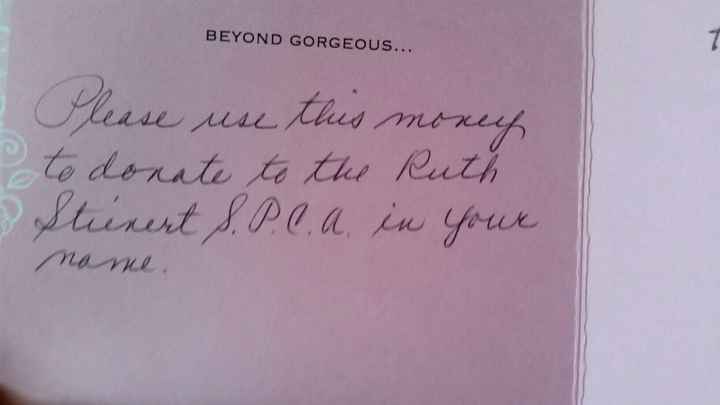 BEYOND GORGEOUS...
Please use this money
to donate to the Ruth
Stienert S.P.C.A. in your
name.